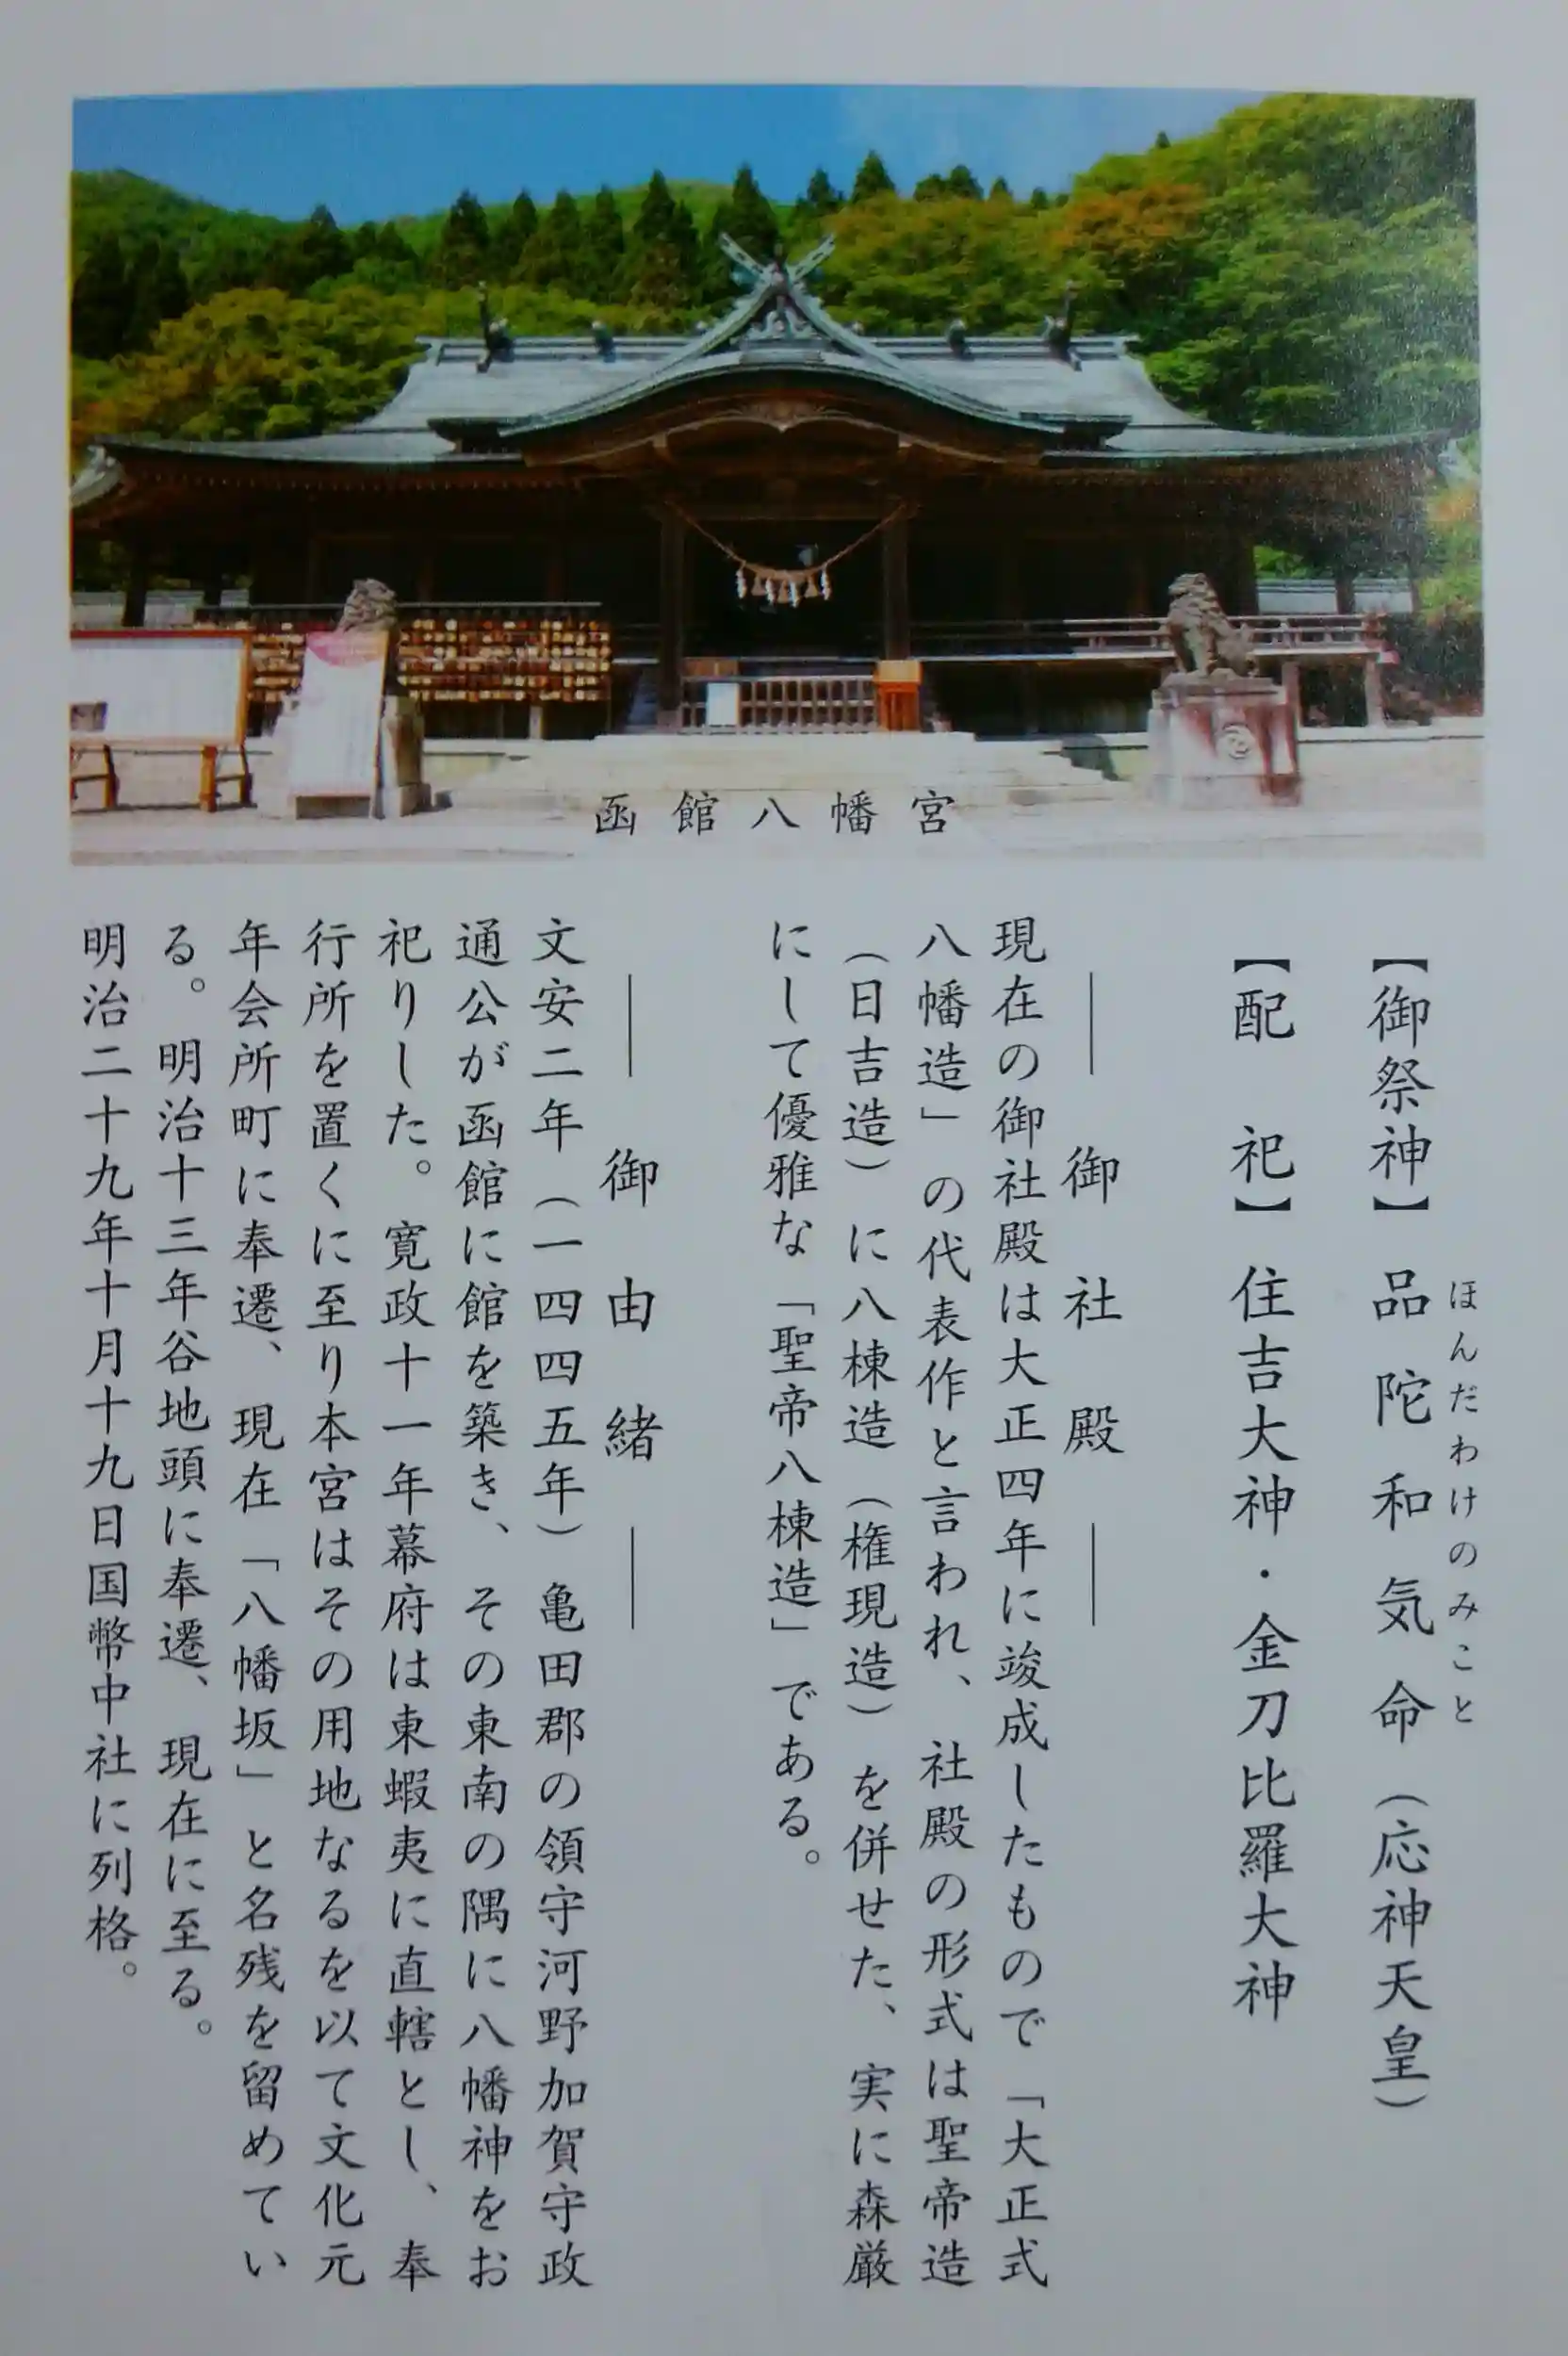 函館八幡宮
【御祭神】品陀和気命（応神天皇）
ほんだわけのみこと
【配　祀】住吉大神・金刀比羅大神
―― 御社殿 ――
現在の御社殿は大正四年に竣成したもので「大正式
八幡造」の代表作と言われ、社殿の形式は聖帝造
（日吉造）に八棟造（権現造）を併せた、実に森厳
にして優雅な「聖帝八棟造」である。
―― 御由緒 ――
文安二年（一四四五年）亀田郡の領守河野加賀守政
通公が函館に館を築き、その東南の隅に八幡神をお
祀りした。寛政十一年幕府は東蝦夷に直轄とし、奉
行所を置くに至り本宮はその用地なるを以て文化元
年会所町に奉遷、現在「八幡坂」と名残を留めてい
る。明治十三年谷地頭に奉遷、現在に至る。
明治二十九年十月十九日国幣中社に列格。